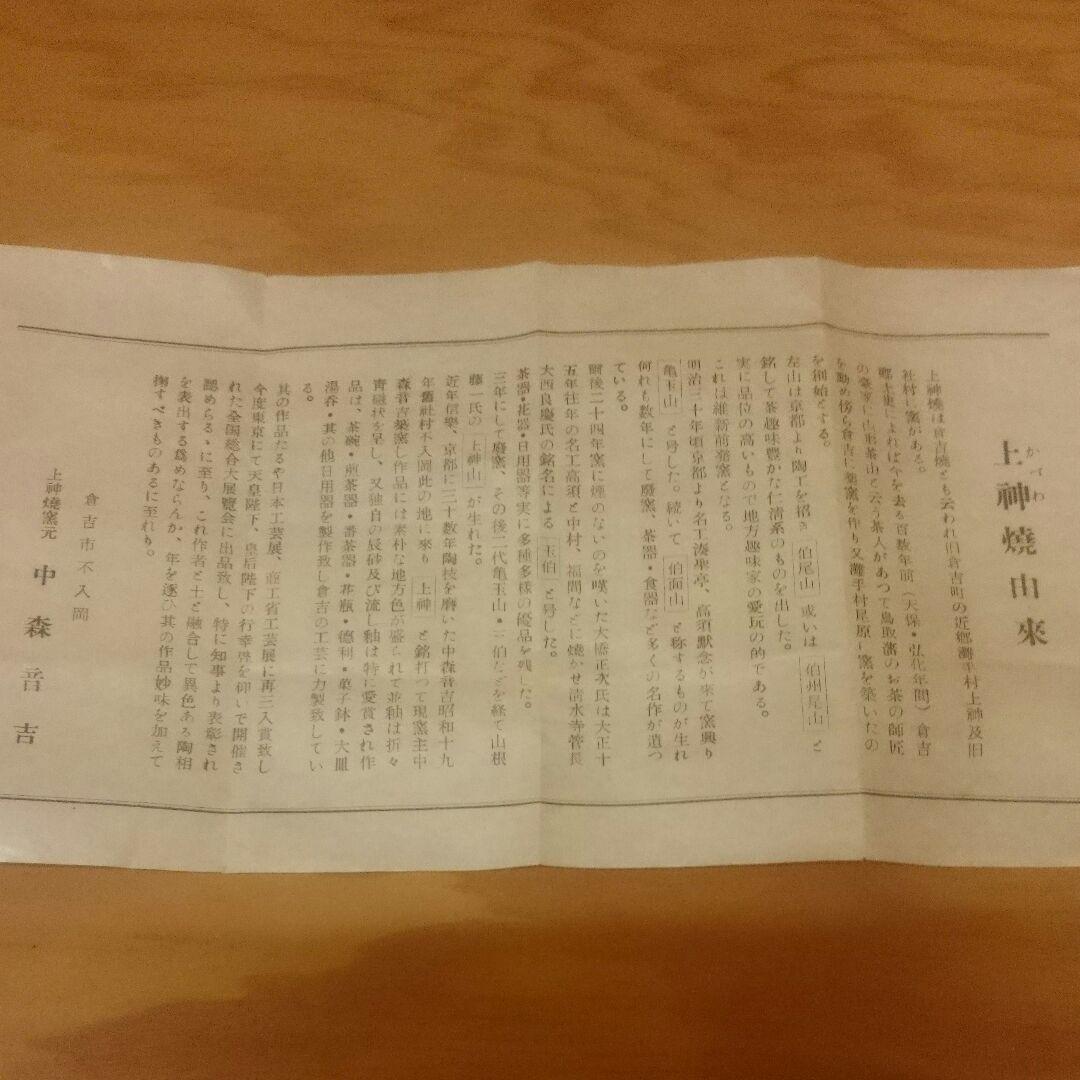 かずわ
上神燒由來
上神燒は倉吉燒とも云われ旧倉吉町の近郷灘手村上神及旧
社村に窯がある。
郷土史によれば今を去る百数年前（天保・弘化年間）倉吉
の豪家に山形茶山と云う茶人があつて鳥取藩のお茶の師匠
を勤め傍ら倉吉に築窯を作り又灘手村尾原に窯を築いたの
を創始とする。
左山は京都より陶工を招き 伯尾山 或いは 伯州尾山 と
銘して茶趣味豊かな仁清系のものを出した。
実に品位の高いもので地方趣味家の愛玩の的である。
これは維新前廃窯となる。
明治三十年頃京都より名工湊聖亭、高須默念が来て窯興り
亀玉山 と号した。続いて 伯面山 と称するものが生れ
何れも数年にして廢窯、茶器・食器など多くの名作が遺つ
ている。
爾後二十四年窯に煙のないのを嘆いた大橋正次氏は大正十
五年往年の名工高須と中村、福間などに燒かせ清水寺管長
大西良慶氏の銘名による 玉伯 と号した。
茶器・花器・日用器等実に多種多樣の優品を残した。
三年にして廢窯、その後二代亀玉山・ 伯などを経て山根
藤一氏の 上神山 が生れた。
近年信樂、京都に三十数年陶技を磨いた中森音吉昭和十九
年舊社村不入岡此の地に來り 上神 と銘打つて現窯主中
森音吉築窯し作品には素朴な地方色が盛られて並釉は折々
靑磁狀を呈し、又独自の辰砂及び流し釉は特に愛賞され作
品は、茶碗・煎茶器・番茶器・花瓶・德利・菓子鉢・大皿
湯呑・其の他日用器を製作致し倉吉の工芸に力製致してい
る。
其の作品たるや日本工芸展、商工省工芸展に再三入賞致し
今度東京にて天皇陛下、皇后陛下の行幸啓を仰いで開催さ
れた全国総合大展覽会に出品致し、特に知事より表彰され
認めらるゝに至り、これ作者と土と融合して異色ある陶相
を表出する爲めならんか、年を逐ひ其の作品妙味を加えて
掬すべきものあるに至れり。
倉吉市不入岡
上神燒窯元 中森音吉